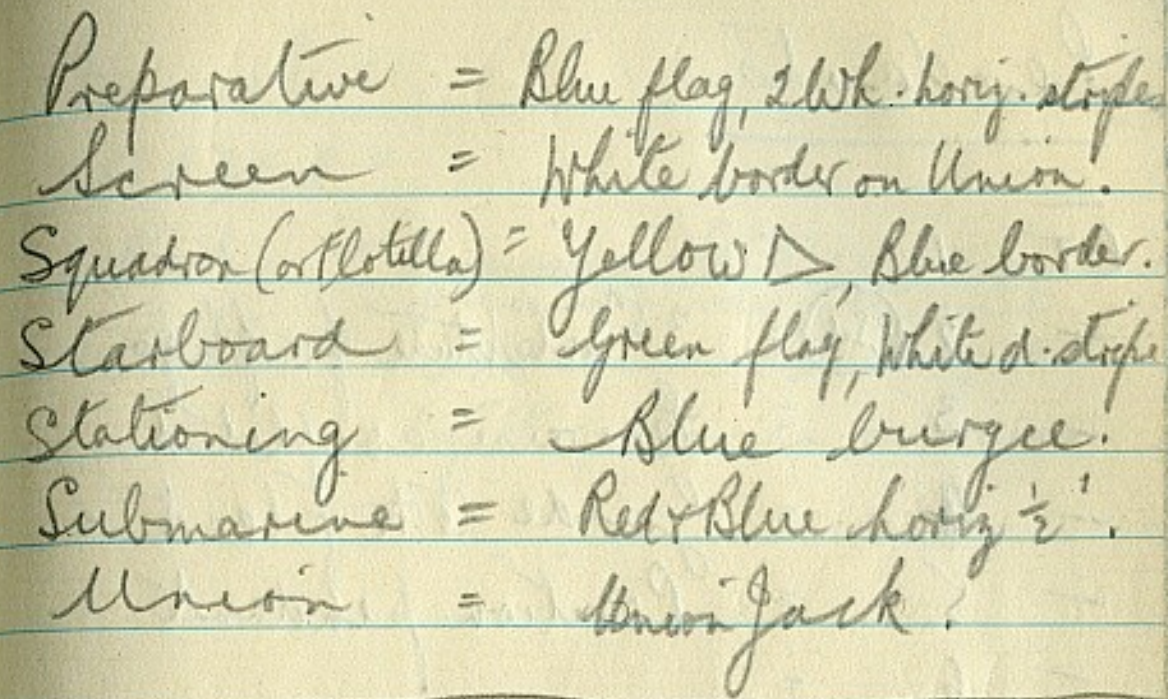 Preparative = Blue flag, 2 Wh. horiz. stripe
Screen = White border on Union.
Squadron (or Flotilla) = Yellow ▷, Blue border.
Starboard = Green flag, White d. stripe
Stationing = Blue burgee.
Submarine = Red & Blue horiz ½'.
Union = Union Jack.